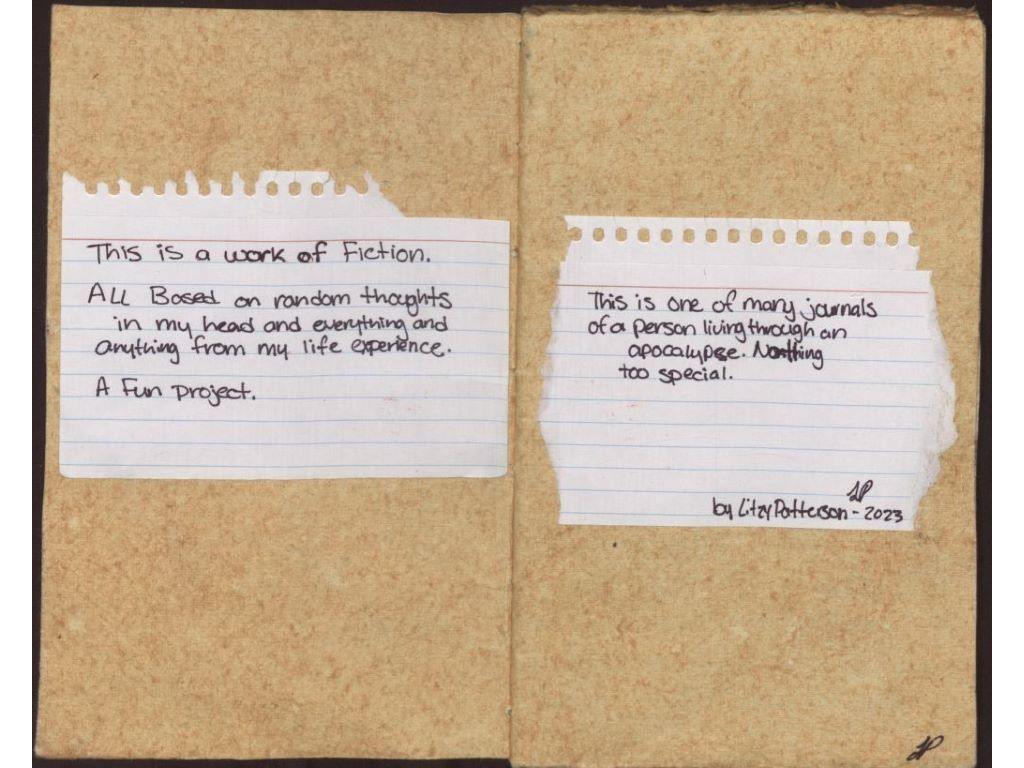 This is a work of Fiction.
ALL Based on random thoughts
in my head and everything and
anything from my life experience.
A Fun project.
This is one of many journals
of a person living through an
apocalypse. Nonthing
too special.
LP
by Litzy Patterson - 2023
LP